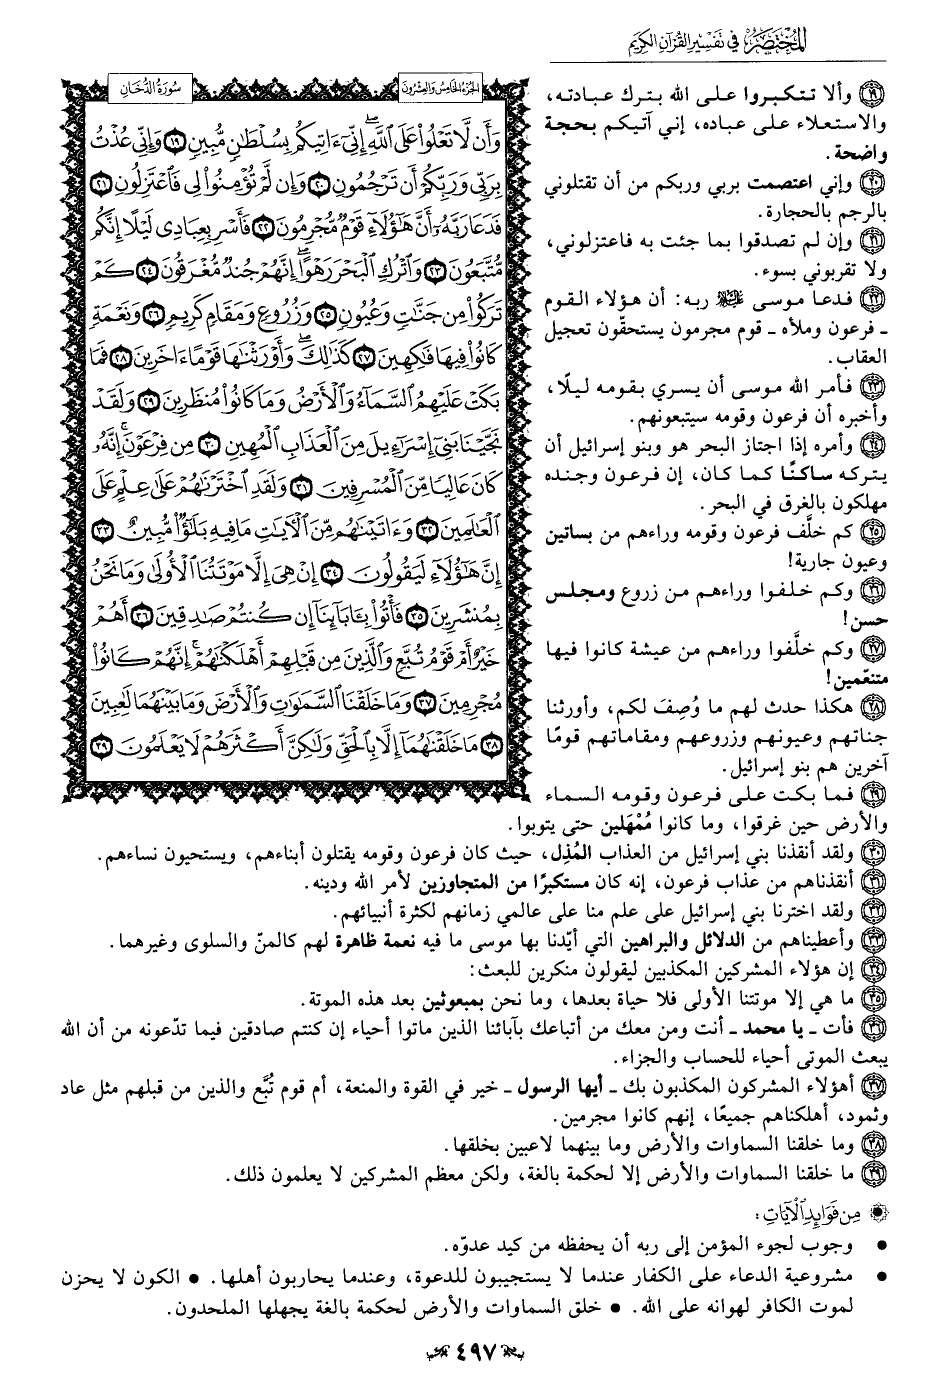 المختصر في تفسير القرآن الكريم
الجزء الخامس والعشرون
سورة الدخان
وَأَن لَّا تَعْلُوا۟ عَلَى ٱللَّهِ ۖ إِنِّىٓ ءَاتِيكُم بِسُلْطَـٰنٍ مُّبِينٍ ١٩ وَإِنِّى عُذْتُ
بِرَبِّى وَرَبِّكُمْ أَن تَرْجُمُونِ ٢٠ وَإِن لَّمْ تُؤْمِنُوا۟ لِى فَٱعْتَزِلُونِ ٢١
فَدَعَا رَبَّهُۥٓ أَنَّ هَـٰٓؤُلَآءِ قَوْمٌ مُّجْرِمُونَ ٢٢ فَأَسْرِ بِعِبَادِى لَيْلًا إِنَّكُم
مُّتَّبَعُونَ ٢٣ وَٱتْرُكِ ٱلْبَحْرَ رَهْوًا ۖ إِنَّهُمْ جُندٌ مُّغْرَقُونَ ٢٤ كَمْ
تَرَكُوا۟ مِن جَنَّـٰتٍ وَعُيُونٍ ٢٥ وَزُرُوعٍ وَمَقَامٍ كَرِيمٍ ٢٦ وَنَعْمَةٍ
كَانُوا۟ فِيهَا فَـٰكِهِينَ ٢٧ كَذَٰلِكَ ۖ وَأَوْرَثْنَـٰهَا قَوْمًا ءَاخَرِينَ ٢٨ فَمَا
بَكَتْ عَلَيْهِمُ ٱلسَّمَآءُ وَٱلْأَرْضُ وَمَا كَانُوا۟ مُنظَرِينَ ٢٩ وَلَقَدْ
نَجَّيْنَا بَنِىٓ إِسْرَٰٓءِيلَ مِنَ ٱلْعَذَابِ ٱلْمُهِينِ ٣٠ مِن فِرْعَوْنَ ۚ إِنَّهُۥ
كَانَ عَالِيًا مِّنَ ٱلْمُسْرِفِينَ ٣١ وَلَقَدِ ٱخْتَرْنَـٰهُمْ عَلَىٰ عِلْمٍ عَلَى
ٱلْعَـٰلَمِينَ ٣٢ وَءَاتَيْنَـٰهُم مِّنَ ٱلْـَٔايَـٰتِ مَا فِيهِ بَلَـٰٓؤٌا۟ مُّبِينٌ ٣٣
إِنَّ هَـٰٓؤُلَآءِ لَيَقُولُونَ ٣٤ إِنْ هِىَ إِلَّا مَوْتَتُنَا ٱلْأُولَىٰ وَمَا نَحْنُ
بِمُنشَرِينَ ٣٥ فَأْتُوا۟ بِـَٔابَآئِنَآ إِن كُنتُمْ صَـٰدِقِينَ ٣٦ أَهُمْ
خَيْرٌ أَمْ قَوْمُ تُبَّعٍ وَٱلَّذِينَ مِن قَبْلِهِمْ ۚ أَهْلَكْنَـٰهُمْ ۖ إِنَّهُمْ كَانُوا۟
مُجْرِمِينَ ٣٧ وَمَا خَلَقْنَا ٱلسَّمَـٰوَٰتِ وَٱلْأَرْضَ وَمَا بَيْنَهُمَا لَـٰعِبِينَ
٣٨ مَا خَلَقْنَـٰهُمَآ إِلَّا بِٱلْحَقِّ وَلَـٰكِنَّ أَكْثَرَهُمْ لَا يَعْلَمُونَ ٣٩
١٩ وألا تتكبروا على الله بترك عبادته،
والاستعلاء على عباده، إني آتيكم بحجة
واضحة.
٢٠ وإني اعتصمت بربي وربكم من أن تقتلوني
بالرجم بالحجارة.
٢١ وإن لم تصدقوا بما جئت به فاعتزلوني،
ولا تقربوني بسوء.
٢٢ فدعا موسى ﷺ ربه: أن هؤلاء القوم
ـ فرعون وملأه ـ قوم مجرمون يستحقّون تعجيل
العقاب.
٢٣ فأمر الله موسى أن يسري بقومه ليلًا،
وأخبره أن فرعون وقومه سيتبعونهم.
٢٤ وأمره إذا اجتاز البحر هو وبنو إسرائيل أن
يتركه ساكنًا كما كان، إن فرعون وجنده
مهلكون بالغرق في البحر.
٢٥ كم خلَّف فرعون وقومه وراءهم من بساتين
وعيون جارية!
٢٦ وكم خلفوا وراءهم من زروع ومجلس
حسن!
٢٧ وكم خلَّفوا وراءهم من عيشة كانوا فيها
متنعّمين!
٢٨ هكذا حدث لهم ما وُصِفَ لكم، وأورثنا
جناتهم وعيونهم وزروعهم ومقاماتهم قومًا
آخرين هم بنو إسرائيل.
٢٩ فما بكت على فرعون وقومه السماء
والأرض حين غرقوا، وما كانوا مُمْهَلين حتى يتوبوا.
٣٠ ولقد أنقذنا بني إسرائيل من العذاب المُذِل، حيث كان فرعون وقومه يقتلون أبناءهم، ويستحيون نساءهم.
٣١ أنقذناهم من عذاب فرعون، إنه كان مستكبرًا من المتجاوزين لأمر الله ودينه.
٣٢ ولقد اخترنا بني إسرائيل على علم منا على عالمي زمانهم لكثرة أنبيائهم.
٣٣ وأعطيناهم من الدلائل والبراهين التي أيّدنا بها موسى ما فيه نعمة ظاهرة لهم كالمنّ والسلوى وغيرهما.
٣٤ إن هؤلاء المشركين المكذبين ليقولون منكرين للبعث:
٣٥ ما هي إلا موتتنا الأولى فلا حياة بعدها، وما نحن بمبعوثين بعد هذه الموتة.
٣٦ فأت ـ يا محمد ـ أنت ومن معك من أتباعك بآبائنا الذين ماتوا أحياء إن كنتم صادقين فيما تدّعونه من أن الله
يبعث الموتى أحياء للحساب والجزاء.
٣٧ أهؤلاء المشركون المكذبون بك ـ أيها الرسول ـ خير في القوة والمنعة، أم قوم تُبَّع والذين من قبلهم مثل عاد
وثمود، أهلكناهم جميعًا، إنهم كانوا مجرمين.
٣٨ وما خلقنا السماوات والأرض وما بينهما لاعبين بخلقها.
٣٩ ما خلقنا السماوات والأرض إلا لحكمة بالغة، ولكن معظم المشركين لا يعلمون ذلك.
من فوائد الآيات:
• وجوب لجوء المؤمن إلى ربه أن يحفظه من كيد عدوّه.
• مشروعية الدعاء على الكفار عندما لا يستجيبون للدعوة، وعندما يحاربون أهلها. • الكون لا يحزن
لموت الكافر لهوانه على الله. • خلق السماوات والأرض لحكمة بالغة يجهلها الملحدون.
٤٩٧